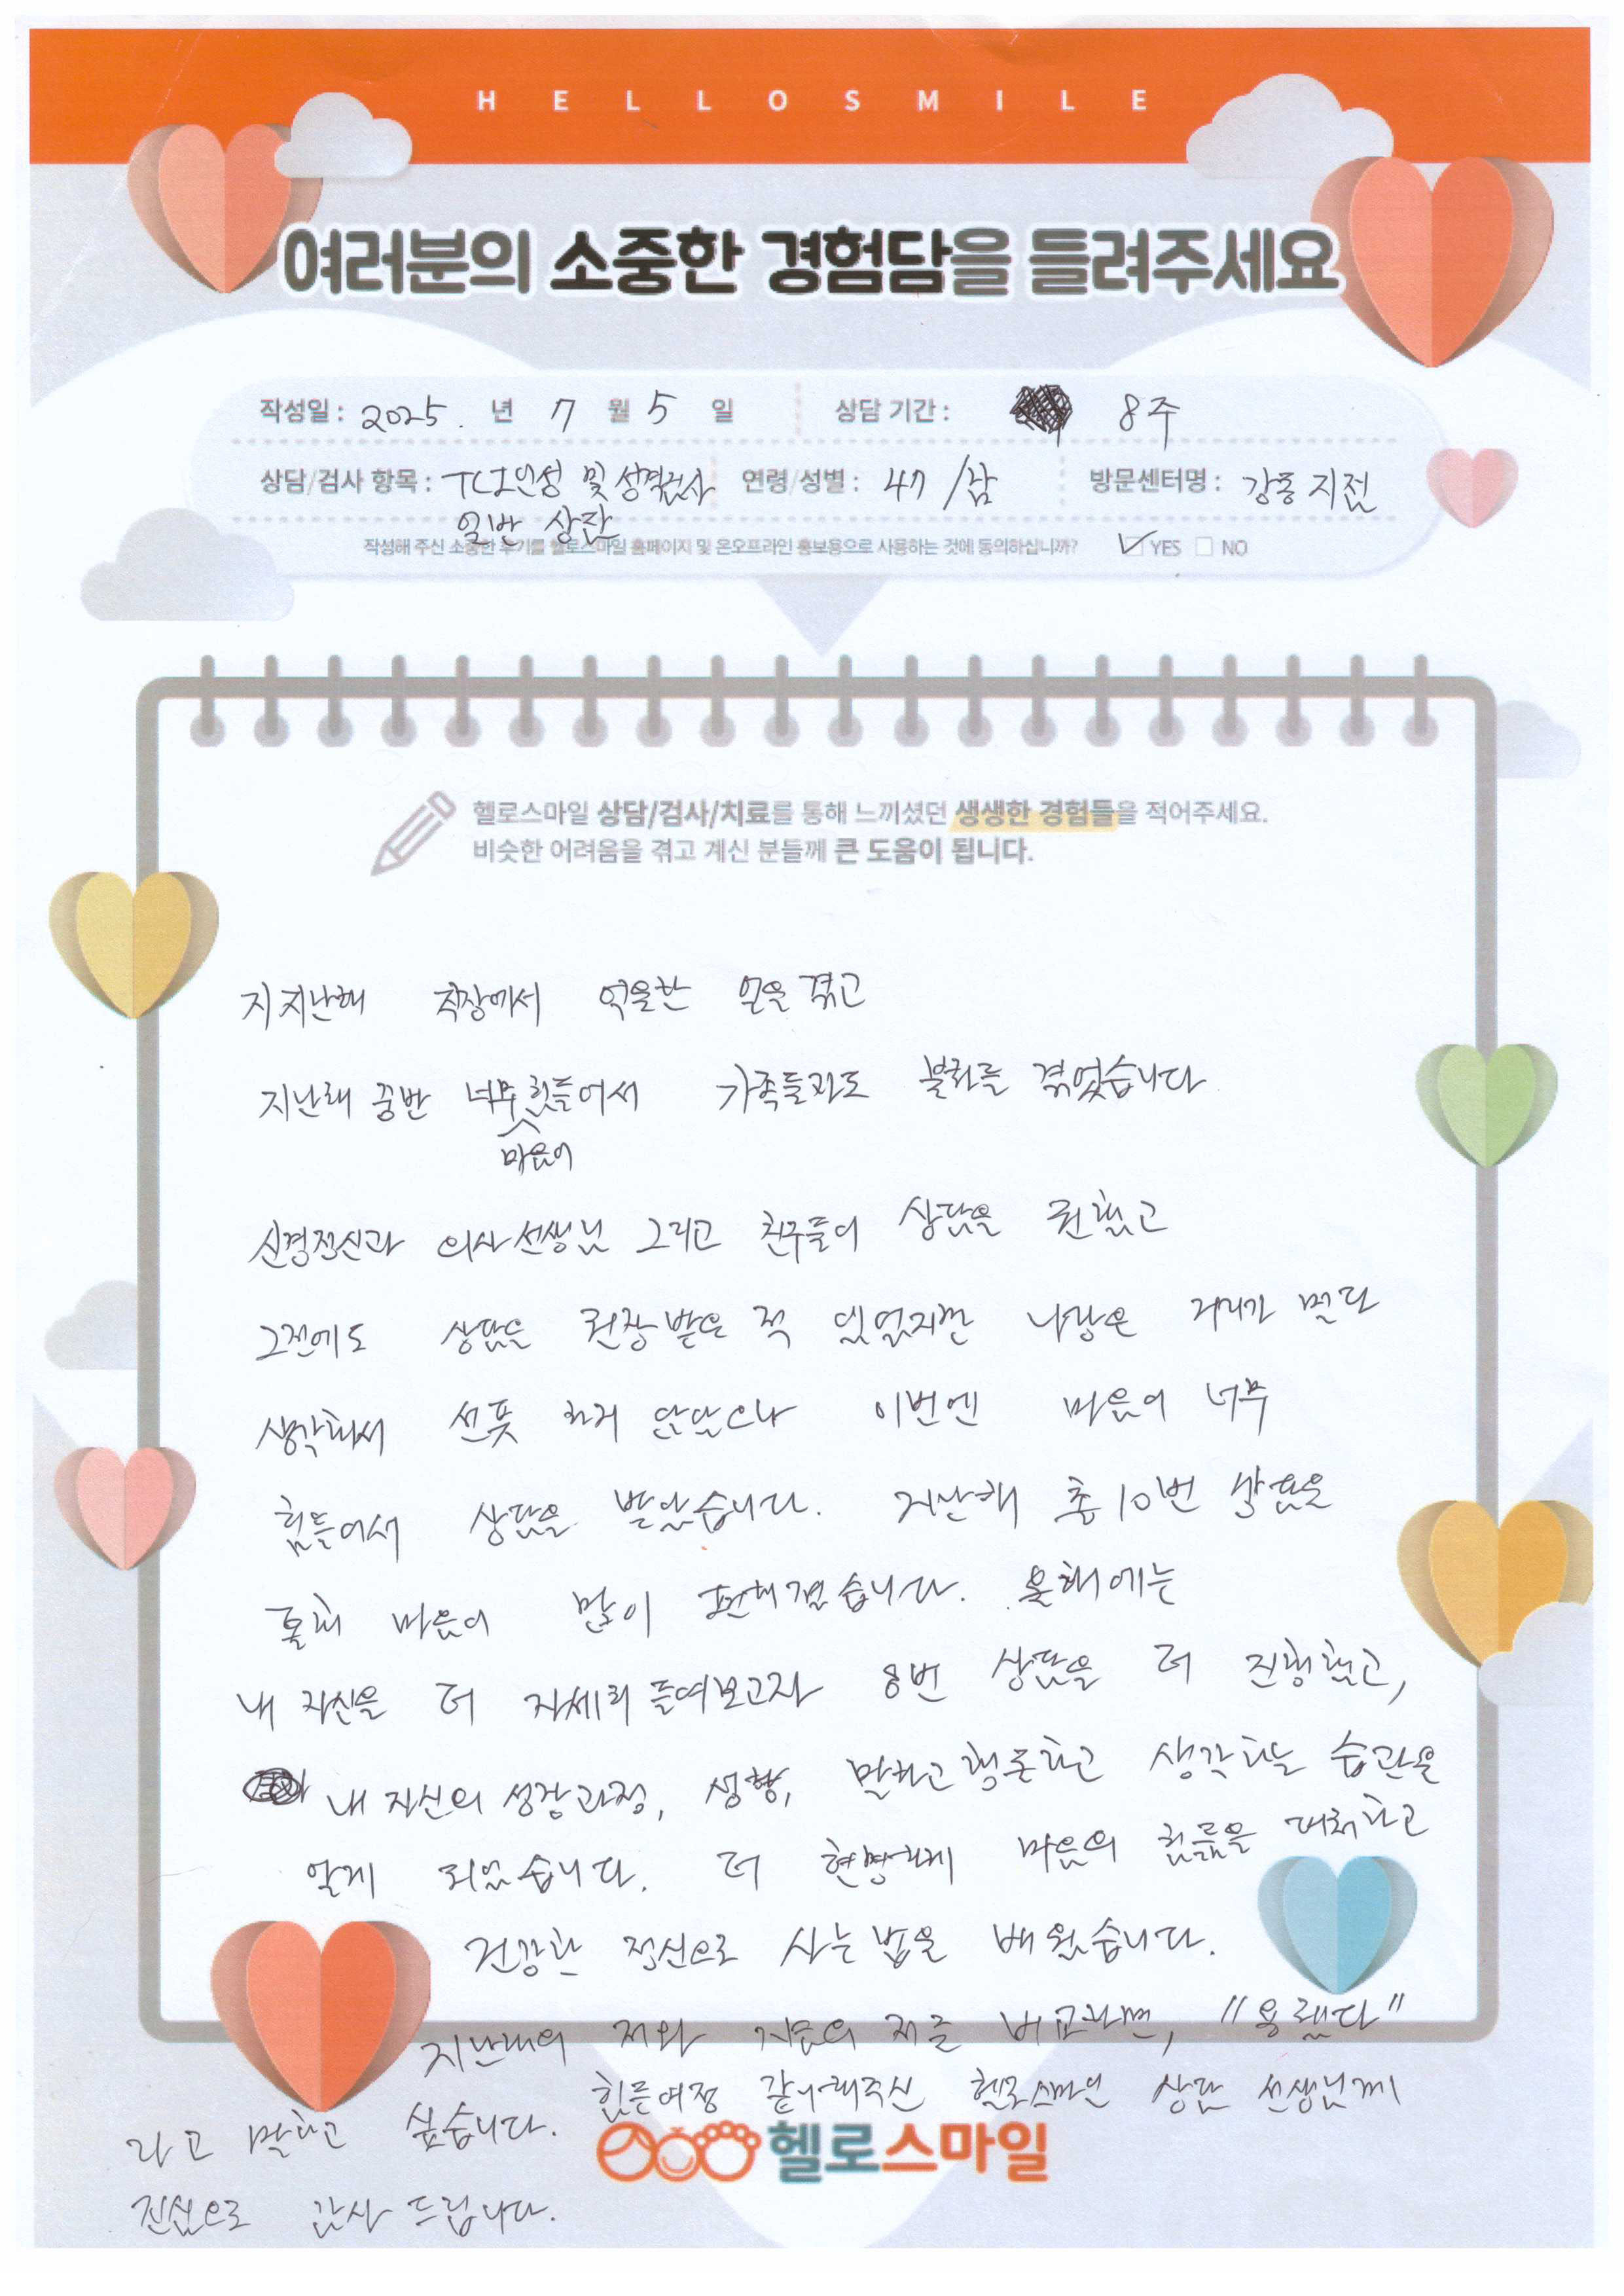 HELLOSMILE
여러분의 소중한 경험담을 들려주세요
작성일 : 2025. 년 7 월 5 일 상담 기간 : 8주
상담/검사 항목 : TCI인성 및 성격검사 연령/성별 : 47 /남 방문센터명 : 강동지점
일반 상담
작성해 주신 소중한 후기를 헬로스마일 홈페이지 및 온오프라인 홍보용으로 사용하는 것에 동의하십니까? YES NO
헬로스마일 상담/검사/치료를 통해 느끼셨던 생생한 경험들을 적어주세요.
비슷한 어려움을 겪고 계신 분들께 큰 도움이 됩니다.
지지난해 직장에서 억울한 일을 겪고
지난해 중반 너무 힘들어서 가족들과도 불화를 겪었습니다
마음이
신경정신과 의사선생님 그리고 친구들이 상담을 권했고
그전에도 상담을 권장 받은 적 있었지만 나랑은 거리가 멀다
생각해서 선뜻 하지 않았으나 이번엔 마음이 너무
힘들어서 상담을 받았습니다. 지난해 총 10번 상담을
통해 마음이 많이 편해졌습니다. 올해에는
내 자신을 더 자세히 들여보고자 8번 상담을 더 진행했고,
내 자신의 성장과정, 성향, 말하고 행동하고 생각하는 습관을
알게 되었습니다. 더 현명하게 마음의 힘듦을 대처하고
건강한 정신으로 사는 법을 배웠습니다.
지난해의 저와 지금의 저를 비교하면, "용됐다"
라고 말하고 싶습니다. 힘든여정 같이해주신 헬로스마일 상담 선생님께
헬로스마일
진심으로 감사 드립니다.